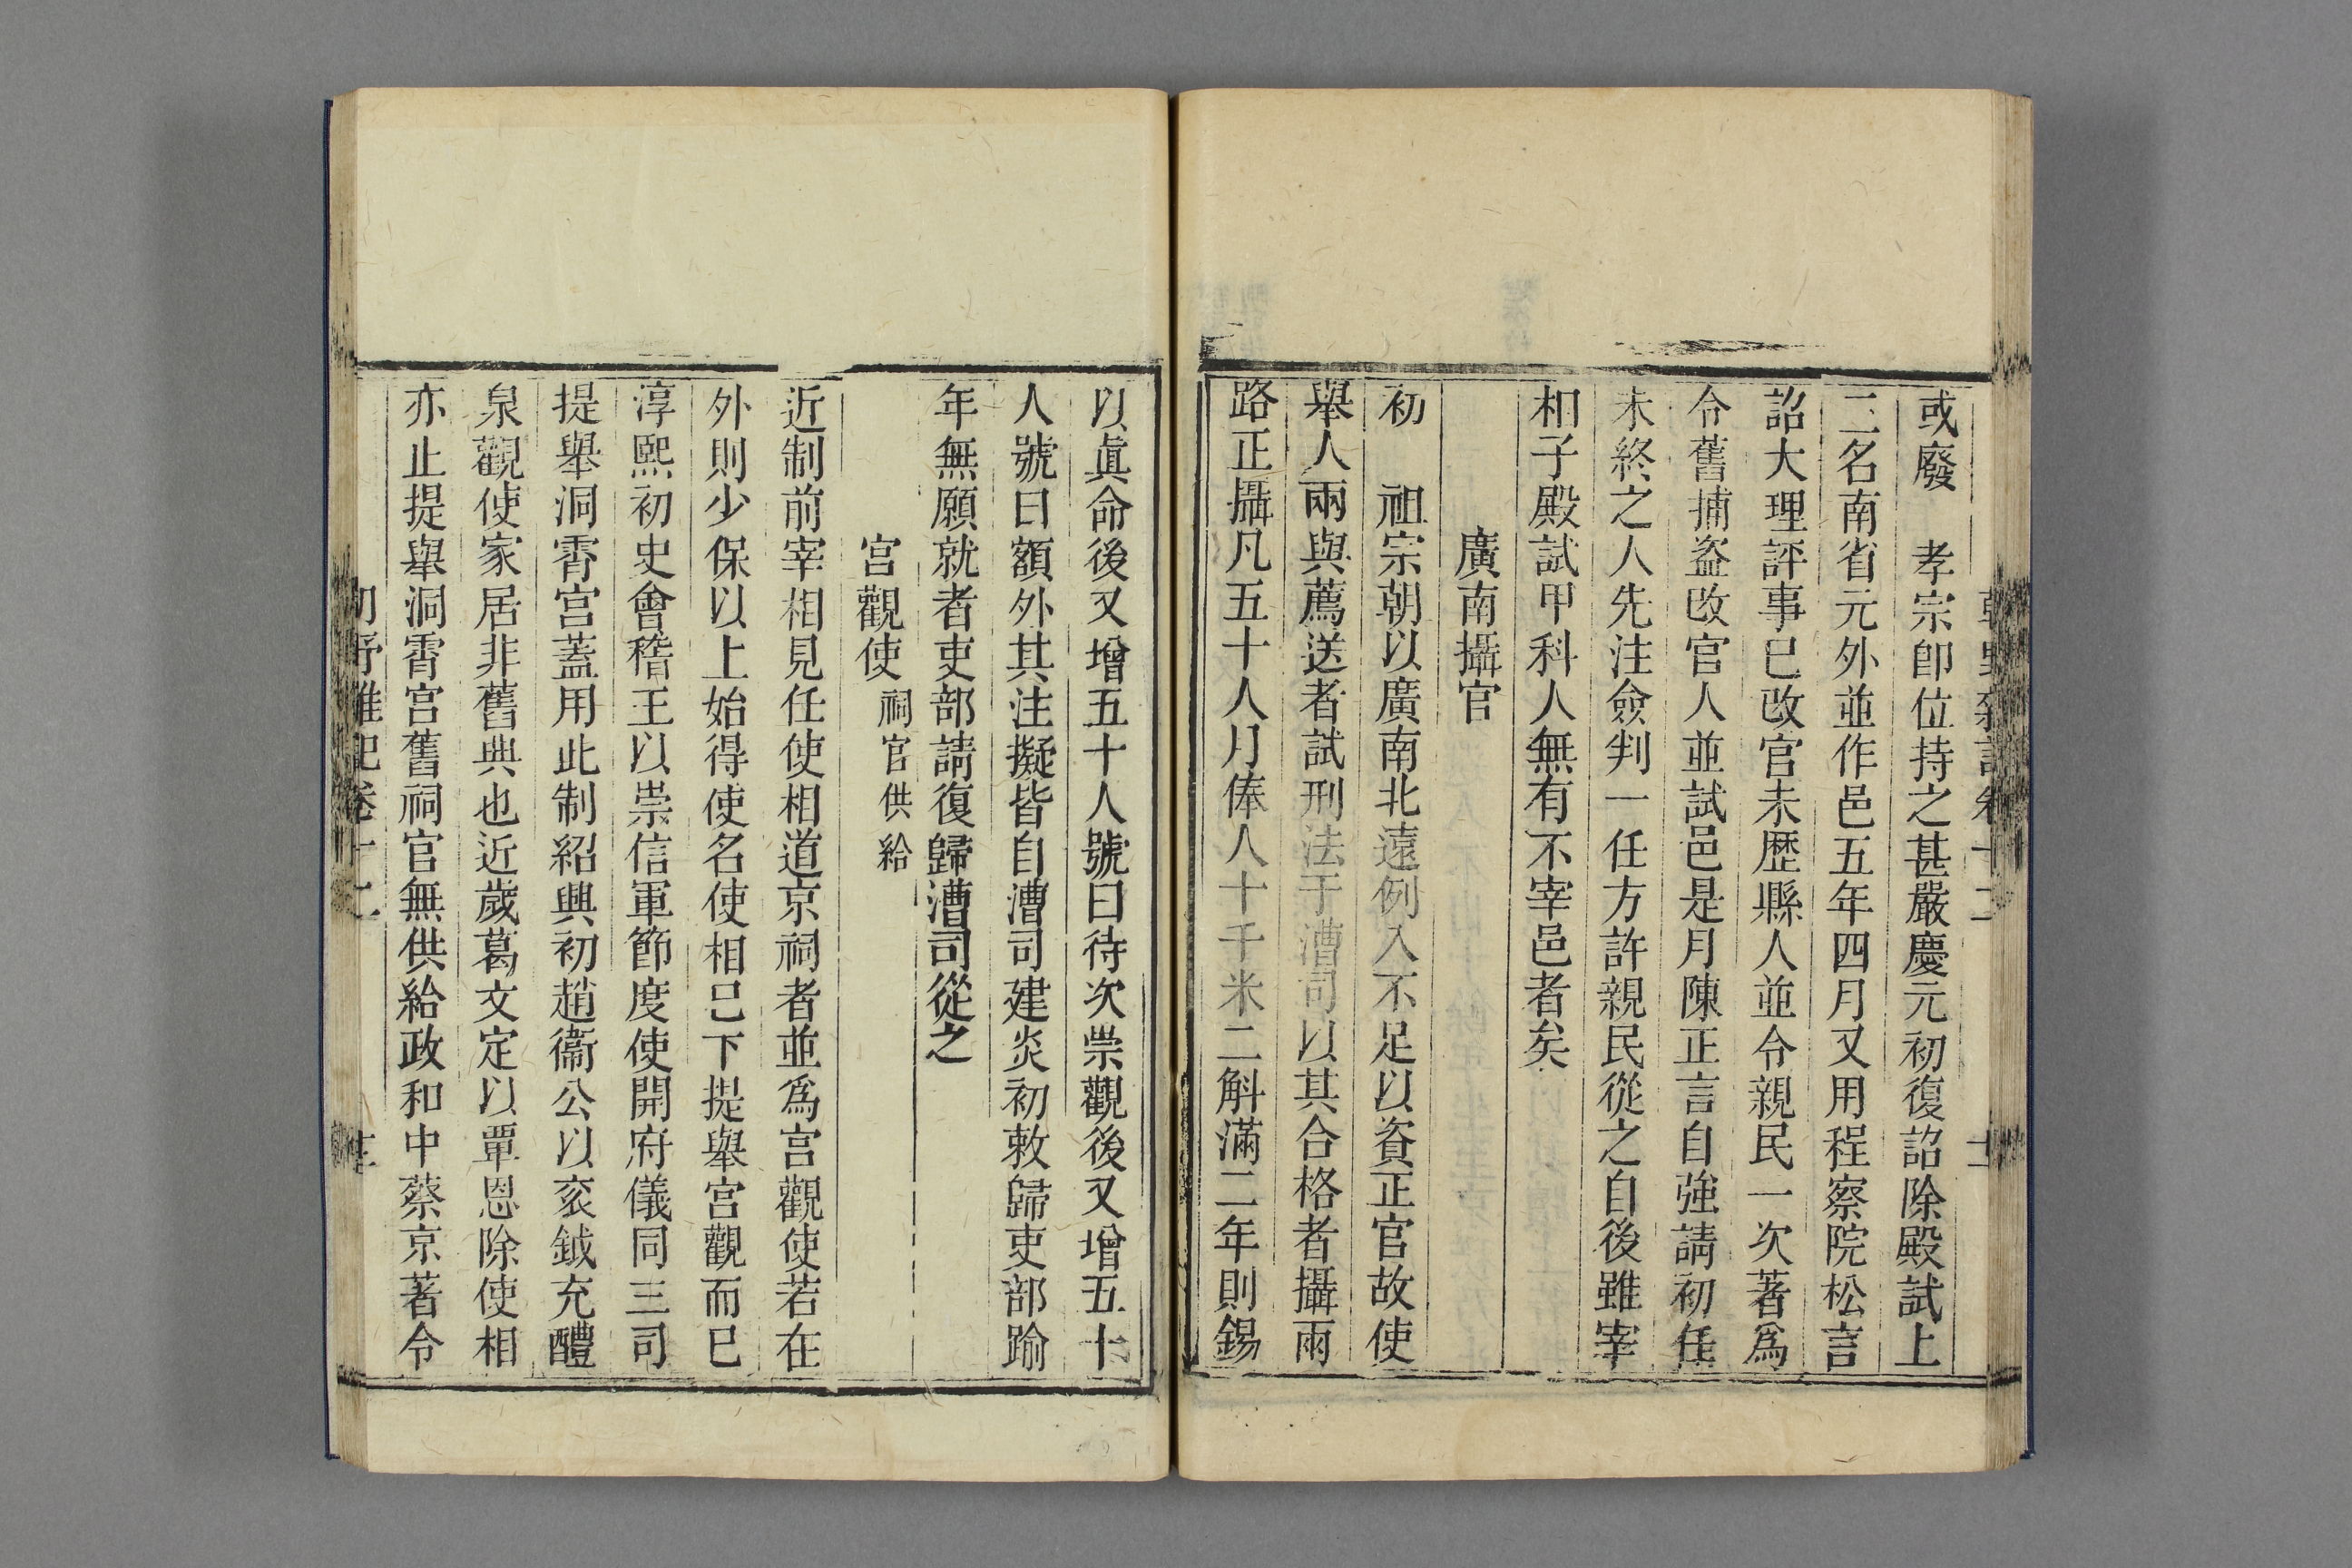 或廢　孝宗卽位持之甚嚴慶元初復詔除殿試上
二名南省元外並作邑五年四月又用程察院松言
詔大理評事已改官未歷縣人並令親民一次著爲
令舊捕盜改官人並試邑是月陳正言自強請初任
未終之人先注僉判一任方許親民從之自後雖宰
相子殿試甲科人無有不宰邑者矣
廣南攝官
初　祖宗朝以廣南北遠例入不足以資正官故使
舉人兩與薦送者試刑法于漕司以其合格者攝兩
路正攝凡五十人月俸人十千米二斛滿二年則錫
以眞命後又增五十人號曰待次崇觀後又增五十
人號曰額外其注擬皆自漕司建炎初敕歸吏部踰
年無願就者吏部請復歸漕司從之
宮觀使 祠官供給
近制前宰相見任使相道京祠者並爲宮觀使若在
外則少保以上始得使名使相已下提舉宮觀而已
淳熙初史會稽王以崇信軍節度使開府儀同三司
提舉洞霄宮蓋用此制紹興初趙衞公以衮鉞充醴
泉觀使家居非舊典也近歲葛文定以覃恩除使相
亦止提舉洞霄宮舊祠官無供給政和中蔡京著令